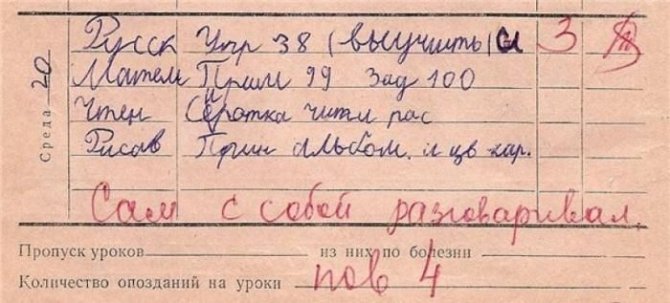 Среда 20
Русск Упр 38 (выучить) и 3
Матем Прим 99 Зад 100
Чтен Сиротка читл рас
Рисов Прин альбом. и цв кар.
Сам с собой разговаривал.
Пропуск уроков из них по болезни
Количество опозданий на уроки пов 4